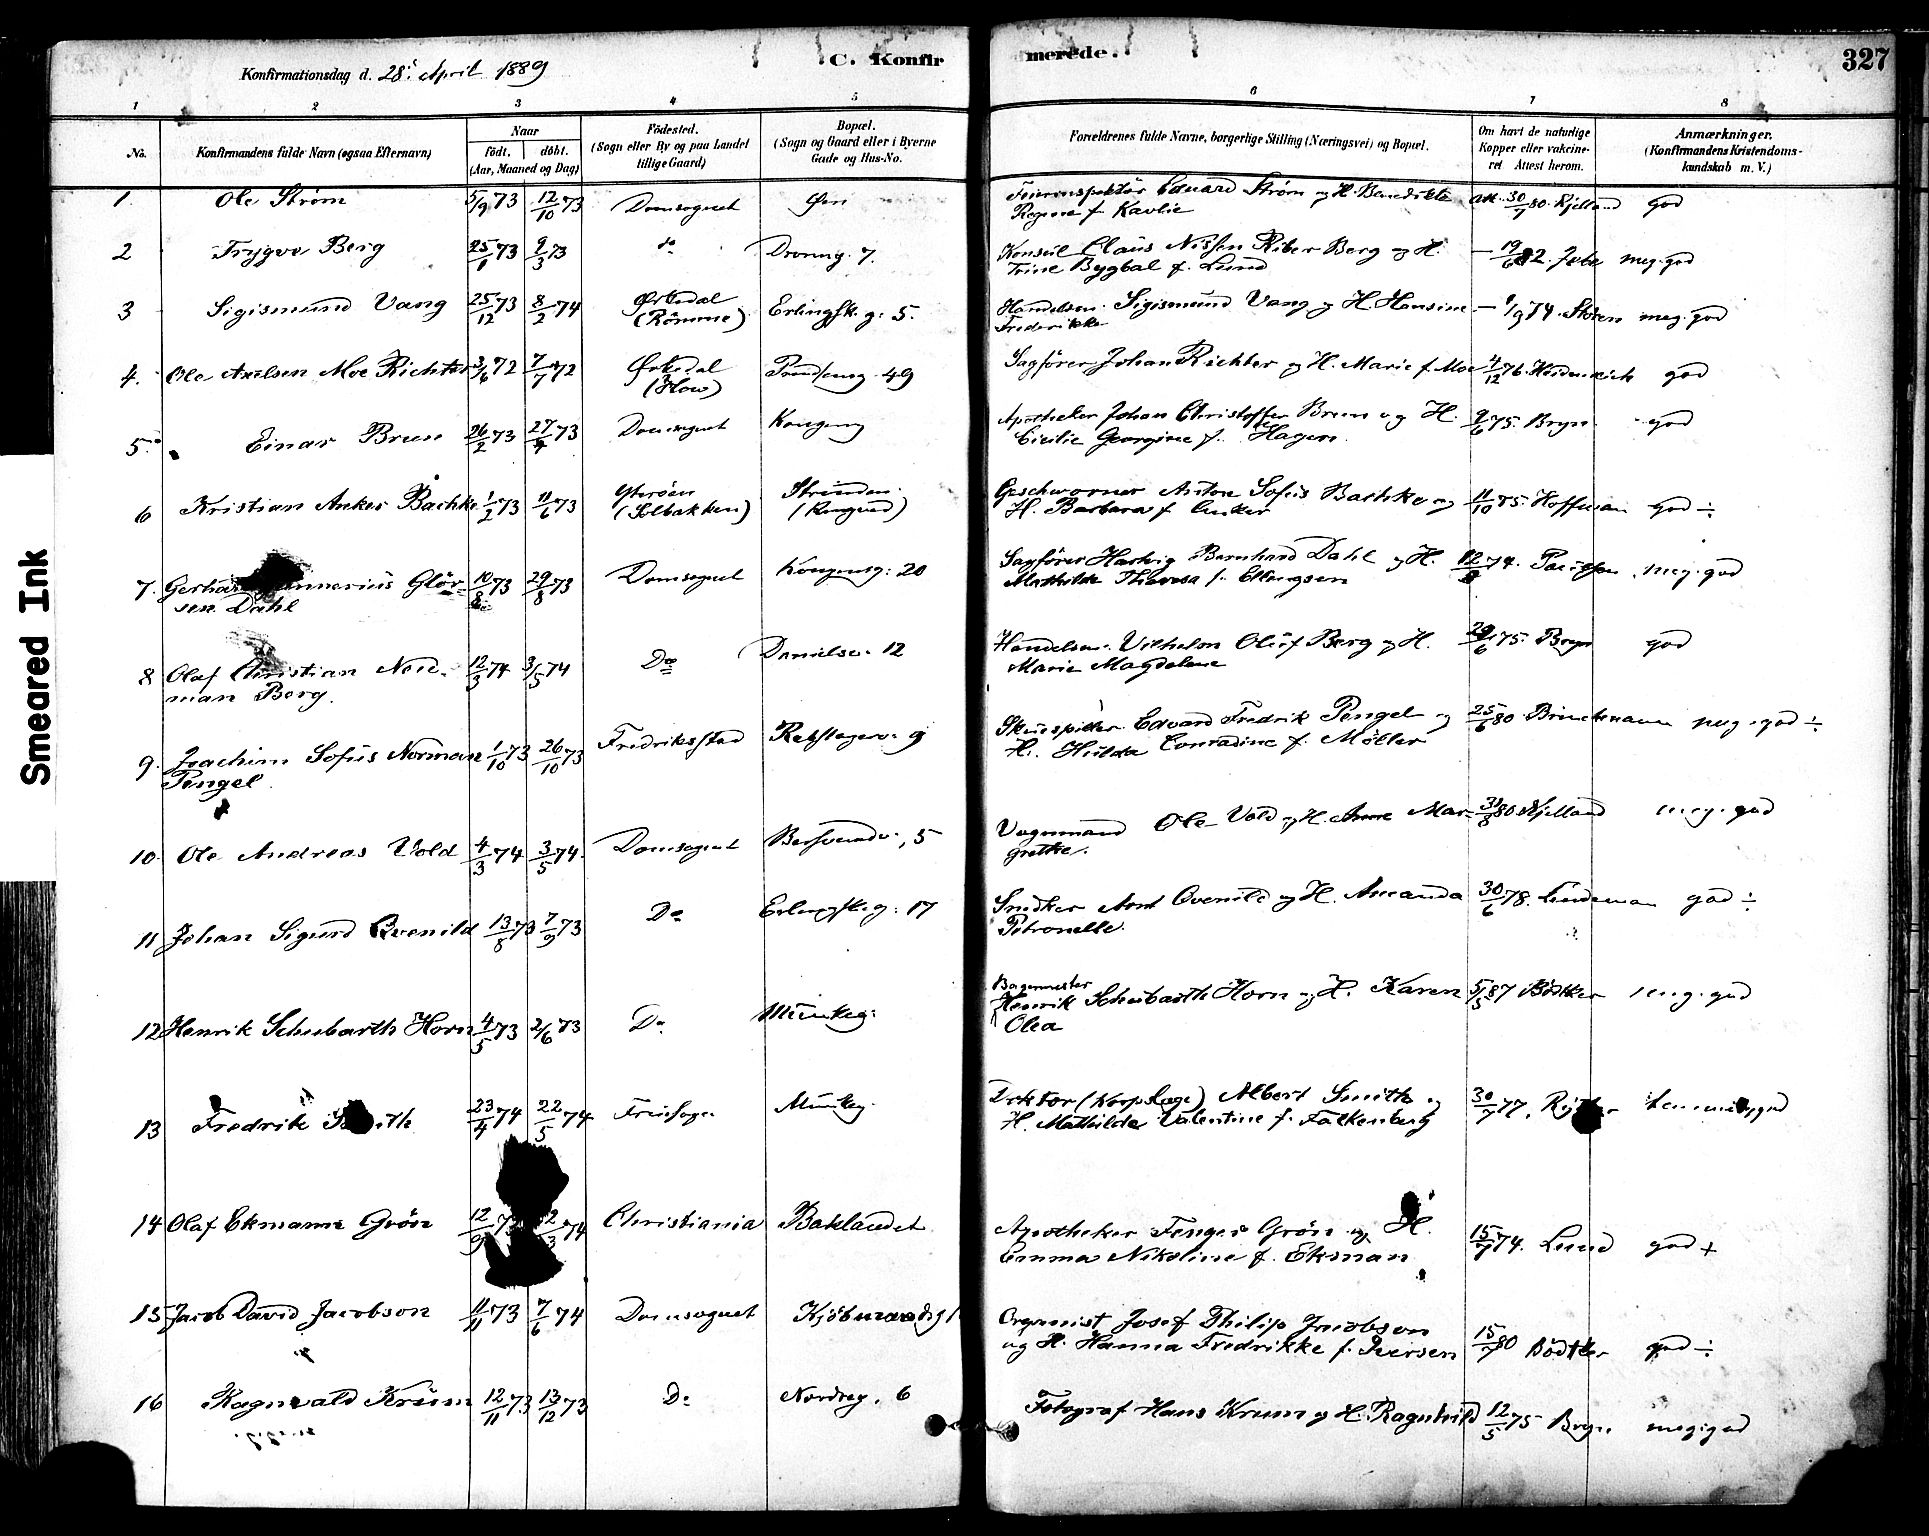 Konfirmationsdag d. 28' April 1889
C. Konfir
merede.
327
1 2 3 4 5 6 7 8
No.
Konfirmandens fulde Navn (ogsaa Efternavn)
Naar
födt. döbt.
(Aar, Maaned og Dag)
Födested.
(Sogn eller By og paa Landet
tillige Gaard)
Bopæl.
(Sogn og Gaard eller i Byerne
Gade og Hus-No.
Forældrenes fulde Navne, borgerlige Stilling (Næringsvei) og Bopæl.
Om havt de naturlige
Kopper eller vakcine-
ret Attest herom.
Anmærkninger.
(Konfirmandens Kristendoms-
kundskab m. V.)
1. Ole Strøm 5/9 73 12/10 73 Domsognet Øen
Eduard Strøm og H. Benedikte att. 30/7 80. Kjelland god
Regine f. Kavlie
2 Trygve Berg 25/1 73 2/3 73 do Dronng. 7.
Konsul Claus Nissen Riber Berg og H. — 19/6 82. meg. god
Trine Bygbal f. Lund
3 Sigismund Vang 25/12 73 8/2 74 Ørkedal Erlingsk. g. 5.
(Römme)
Handelsm. Sigismund Vang og H. Hansine — 1/9 74. meg. god
Frederikke
4. Ole Axelsen Moe Richter 3/6 72 7/7 72 Ørkedal 49
(How)
Sagfører Johan Richter og H. Marie f. Moe 4/12 76. god
5. Einar Brun 26/2 73 27/4 73 Domsognet Kongeng
Apotheker Johan Christoffer Brun og H. 9/6 75. Bryn god
Cicilie Georgine f. Hagen.
6 Kristian Anker Bachke 1/2 73 11/6 73 Ytterøen Strinden.
(Solbakken) (Ringved)
Geschworner Anton Sofus Bachke og 11/10 85. Hoffman god ÷
H. Barbara f. Anker
7. Gerhard Gunnerius Glör- 10/8 73 29/8 73 Domsognet Kongensg: 20
sen Dahl
Sagfører Hartvig Bernhard Dahl og H. 12/8 74. meg. god
Mathilde Theresa f. Ellingsen
8 Olaf Christian Nor- 12/3 74 3/5 74 Do Danielsv. 12
man Berg.
Handelsm. Vilhelm Oluf Berg og H. 29/6 75. Bryn god
Marie Magdalene
9. Joachim Sofus Norman 1/10 73 26/10 73 Fredriksstad Rebslagerv. 9
Pengel
Skuespiller Edvard Fredrik Pengel og 25/6 80 Brinchmann meg. god ÷
H. Hulda Conradine f. Möller
10. Ole Andreas Vold 4/3 74 3/5 74. Domsognet Bersvendv., 5
Vognmand Ole Vold og H. Anne Mar- 31/8 80 Kjelland meg. god
grethe.
11 Johan Sigurd Qvenild 13/8 73 7/9 73 Do Erlingsk. g: 17
Snedker Arnt Qvenild og H. Amanda 30/6 78. Lindeman god ÷
Petronelle.
12 Henrik Schubarth Horn 4/5 73 2/6 73 Do Munkeg:
Bagermester
Henrik Schubarth Horn og H. Karen 5/5 87 Bödtker meg. god
Olea
13 Fredrik Smith 23/4 74 22/5 74 Fruesogn Munkeg.
Doktor (Korpslæge) Albert Smith og 30/7 77. temmelig god
H. Mathilde Valentine f. Falkenberg
14 Olaf Ekmann Grön 12/9 73 2/3 74 Christiania Baklandet
Apotheker Fenger Grön og H. 15/7 74. Lund god +
Emma Nikoline f. Ekman
15 Jacob David Jacobson 11/11 73 7/6 74 Domsognet
Organist Josef Philip Jacobson 15/7 80 Bödtker god ÷
og H. Hanna Fredrikke f. Iversen
16 Ragnvald Krum 12/11 73 13/12 73 Do Nordreg. 6
Fotograf Hans Krum og H. Ragnhild 12/5 75 Bryn meg. god
Smeared Ink